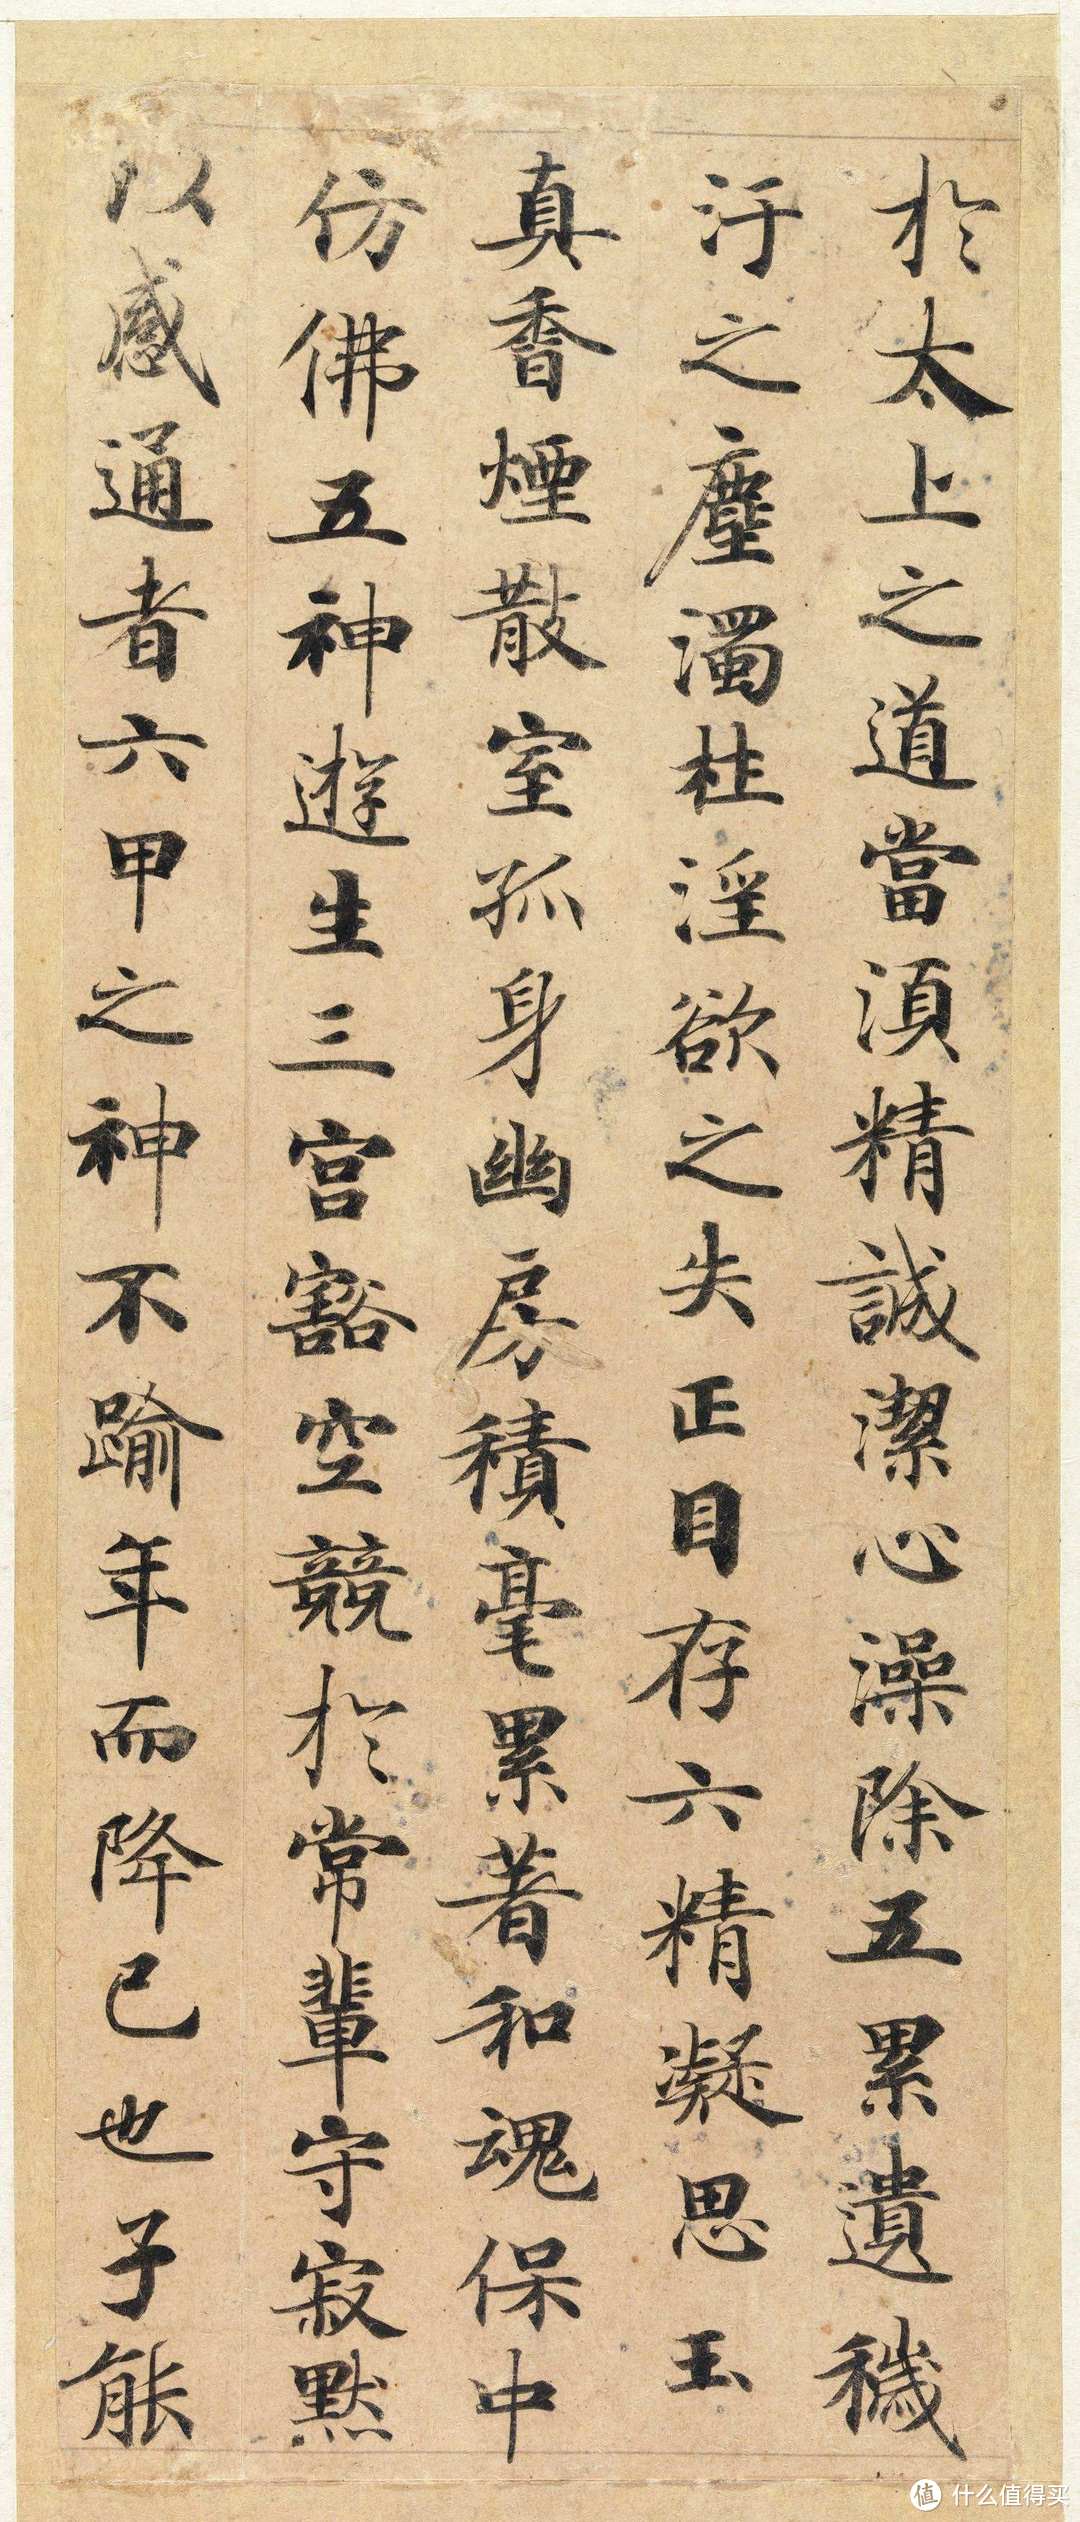 於太上之道當湏精誠潔心澡除五累遺穢
汙之塵濁杜淫欲之失正目存六精凝思玉
真香煙散室孤身幽房積毫累著和魂保中
仿佛五神遊生三宮豁空競於常輩守寂默
以感通者六甲之神不踰年而降已也子能
值 什么值得买